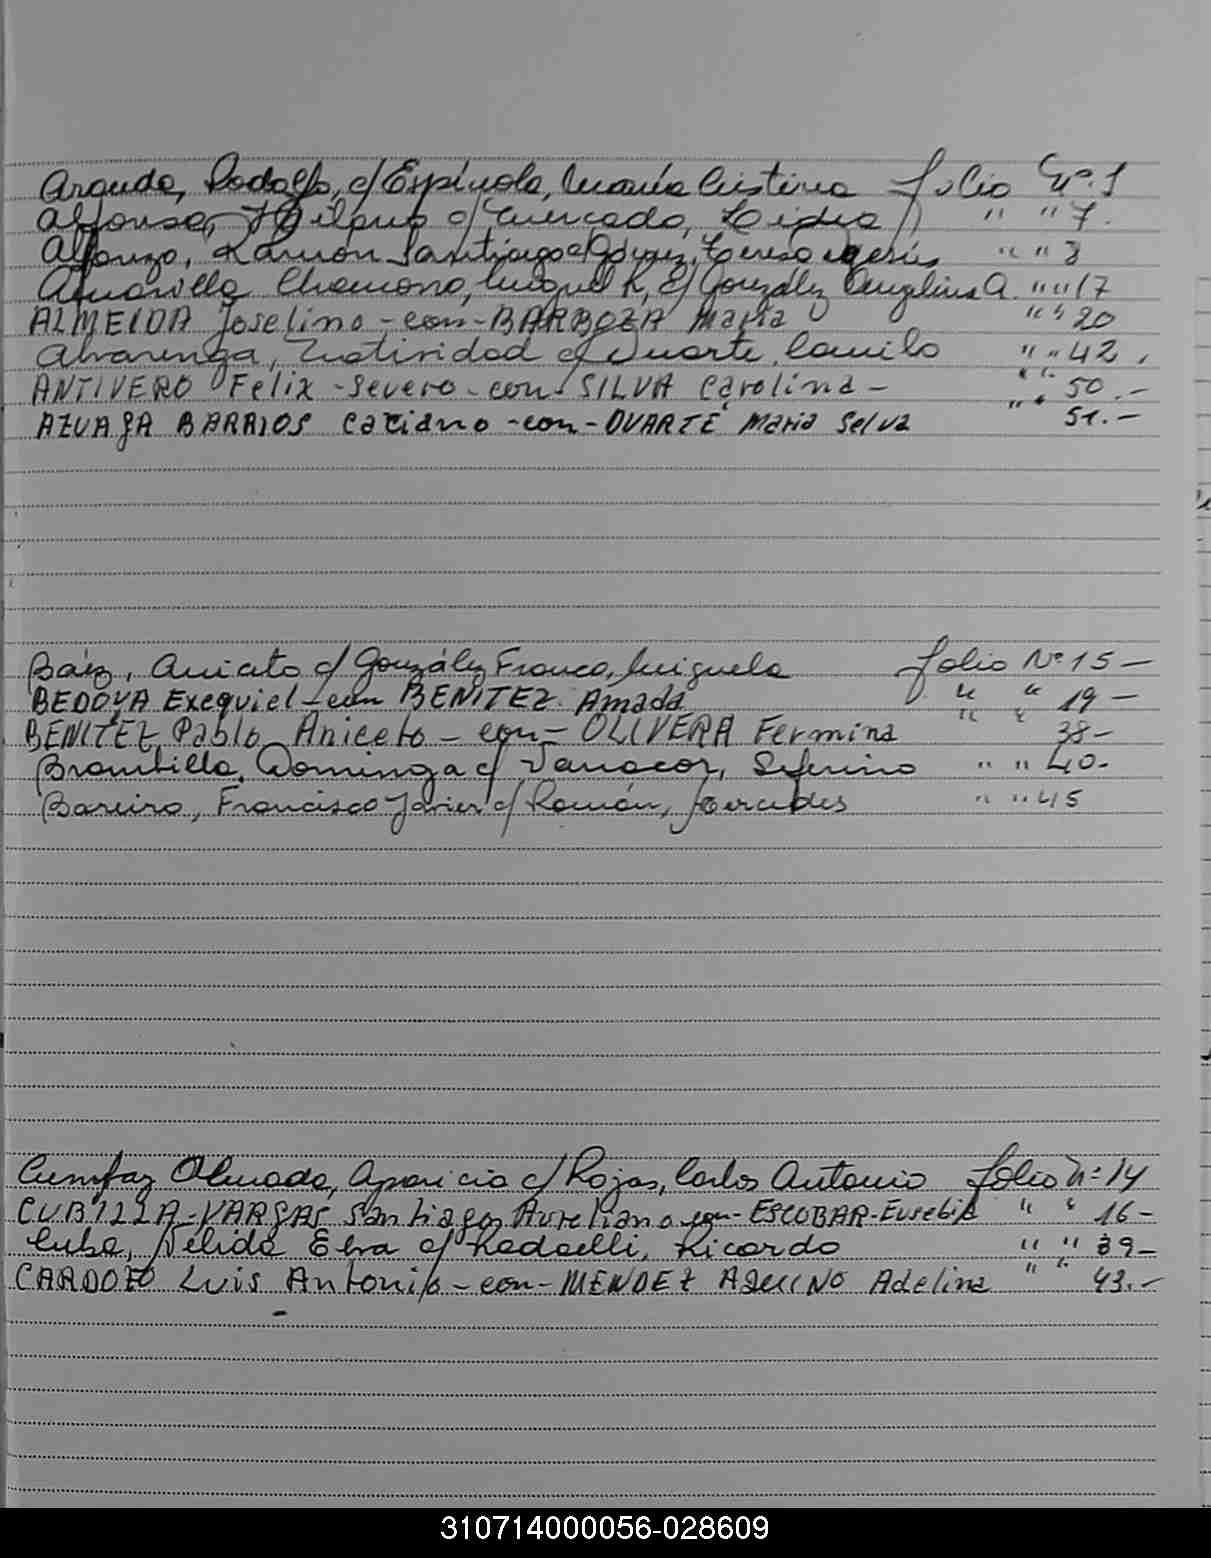 Aranda, Rodolfo, c/ Espínola, María Cristina folio Nº. 1
Alfonso, c/ Mercado, Lidia " " 7.
Alfonzo, Ramón Santiago c/ Gómez, Teresa Jesús " " 8
Amarilla Chamorro, Miguel R, c/ González Angelina A. " " 17
ALMEIDA Joselino - con - BARBOZA Maria " " 20
Alvarenga, Natividad c/ Duarte, Camilo " " 42.
ANTIVERO Felix - Severo - con - SILVA Carolina - " " 50.-
AZUAGA BARRIOS Caciano - con - DUARTE Maria Selva " " 51.-
Báez, Aniceto c/ González Franco, Miguela folio Nº 15 -
BEDOYA Exequiel - con BENITEZ Amada " " 19 -
BENITEZ Pablo Aniceto - con - OLIVERA Fermina " " 38 -
Brombilla, Dominga c/ Seferino " " 40.-
Bareiro, Francisco Javier c/ Román, Mercedes " " 45
Almada, Aparicio c/ Rojas, Carlos Antonio folio Nº 14
CUBILLA - VARGAS Santiago Aureliano con - ESCOBAR - Eusebia " " 16 -
Cuba, Nélida Elva c/ Radaelli, Ricardo " " 39 -
CARDOZO Luis Antonio - con - MENDEZ AQUINO Adelina " " 43.-
310714000056-028609